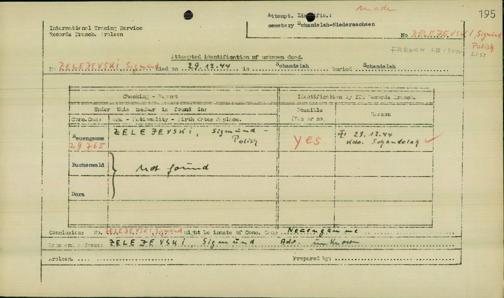 made
195
International Tracing Service
Records Branch. Arolsen
Attempt. Identific.:
cemetery Schandelah-Niedersachsen
No ZELEZEVSKI, Sigmund
Polish
FRENCH LIST
Attempted identification of unknown dead.
No. ZELEZEVSKI Sigmund died on 29.12.44 in Schandelah Buried Schandelah
Checking - Result
Identification by ITS Records
Under this number is found in:
Possible
Yes or no
Reason
Conc.Camp Name - Nationality - Birth date & place.
Neuengamme
29765
ZELEZEVSKI, Sigmund -
Polish
yes
29.12.44
Kdo. Schandelah
Buchenwald
Not found
Dora
Conclusion: No. ZELEZEVSKI Sigmund might be inmate of Conc. Camp Neuengamme
ZELEZEVSKI, Sigmund Adr. unknown
Arolsen,
Prepared by: